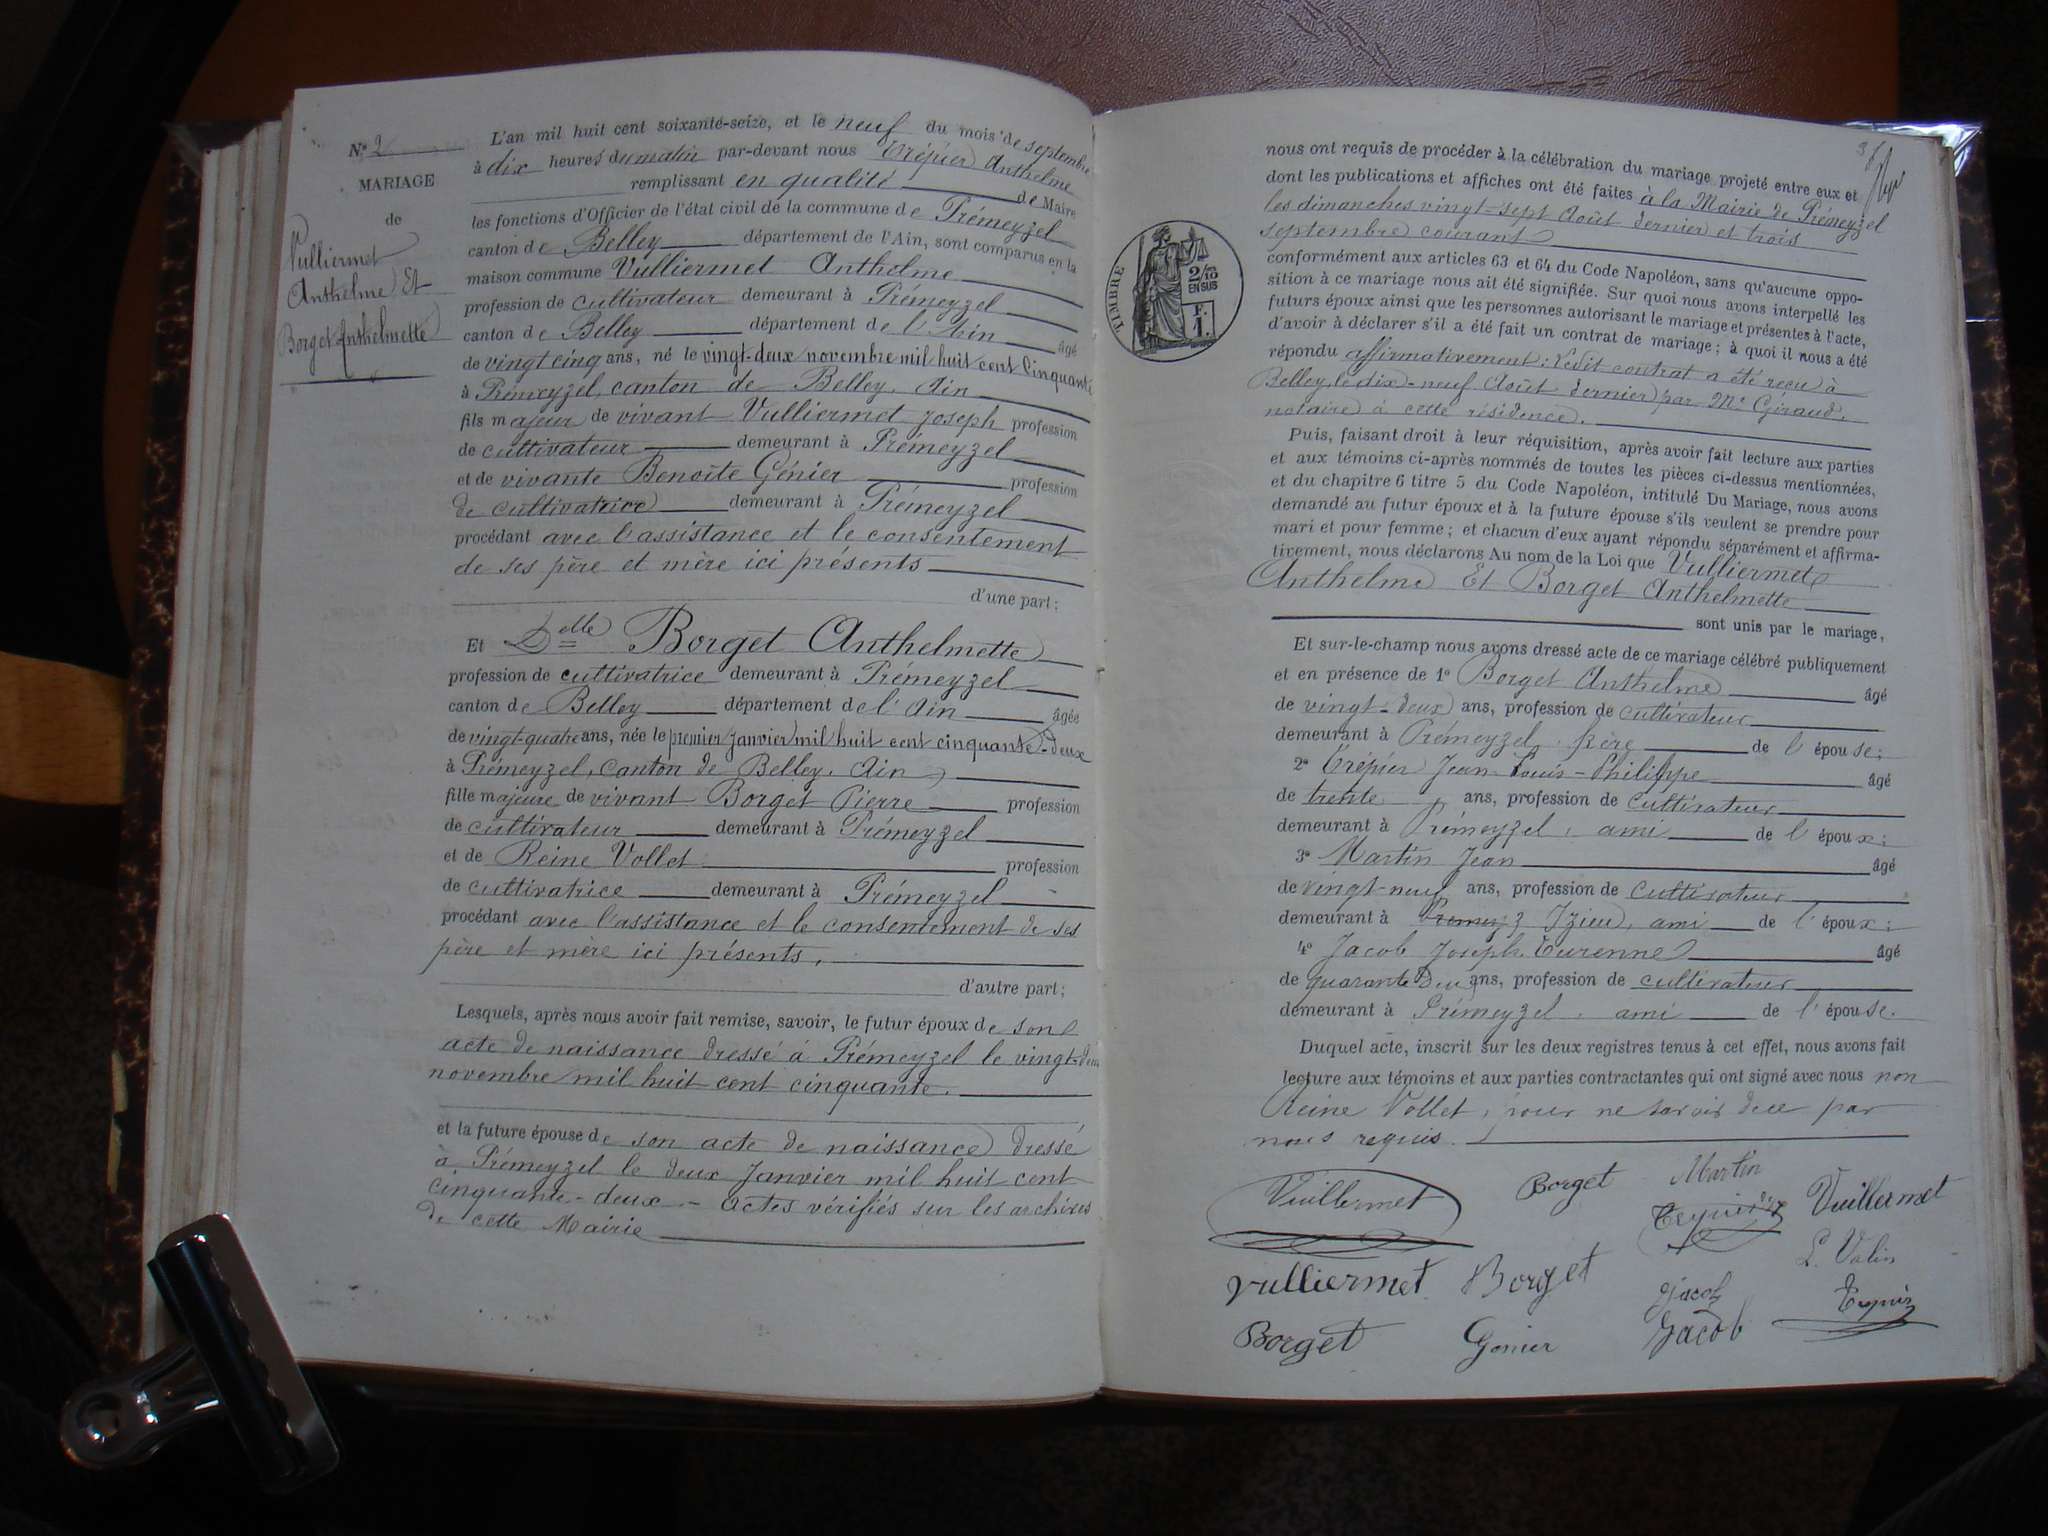 N° 2
MARIAGE
de
Vulliermet
Anthelme Et
Borget Anthelmette
L'an mil huit cent soixante-seize, et le neuf du mois de septembre
à dix heures du matin par-devant nous Trépier Anthelme
remplissant en qualité de Maire
les fonctions d'Officier de l'état civil de la commune de Prémeyzel
canton de Belley département de l'Ain, sont comparus en la
maison commune Vulliermet Anthelme
profession de cultivateur demeurant à Prémeyzel
canton de Belley département de l'Ain âgé
de vingt cinq ans, né le vingt-deux novembre mil huit cent cinquante
à Prémeyzel, canton de Belley, Ain
fils majeur de vivant Vulliermet Joseph profession
de cultivateur demeurant à Prémeyzel
et de vivante Benoîte Génier profession
de cultivatrice demeurant à Prémeyzel
procédant avec l'assistance et le consentement
de ses père et mère ici présents
d'une part ;
Et Delle Borget Anthelmette
profession de cultivatrice demeurant à Prémeyzel
canton de Belley département de l'Ain âgée
de vingt-quatre ans, née le premier janvier mil huit cent cinquante-deux
à Prémeyzel, canton de Belley, Ain,
fille majeure de vivant Borget Pierre profession
de cultivateur demeurant à Prémeyzel
et de Reine Vollet profession
de cultivatrice demeurant à Prémeyzel
procédant avec l'assistance et le consentement de ses
père et mère ici présents,
d'autre part ;
Lesquels, après nous avoir fait remise, savoir, le futur époux de son
acte de naissance dressé à Prémeyzel le vingt-deux
novembre mil huit cent cinquante.
et la future épouse de son acte de naissance dressé
à Prémeyzel le deux Janvier mil huit cent
cinquante-deux. - Actes vérifiés sur les archives
de cette Mairie
3
nous ont requis de procéder à la célébration du mariage projeté entre eux et
dont les publications et affiches ont été faites à la Mairie de Prémeyzel
les dimanches vingt-sept Août dernier et trois
septembre courant
conformément aux articles 63 et 64 du Code Napoléon, sans qu'aucune oppo-
sition à ce mariage nous ait été signifiée. Sur quoi nous avons interpellé les
futurs époux ainsi que les personnes autorisant le mariage et présentes à l'acte,
d'avoir à déclarer s'il a été fait un contrat de mariage ; à quoi il nous a été
répondu affirmativement : Ledit contrat a été reçu à
Belley, le dix-neuf Août dernier par Me Giraud,
notaire à cette résidence.
TIMBRE
2/10
EN SUS
F.
1.
Puis, faisant droit à leur réquisition, après avoir fait lecture aux parties
et aux témoins ci-après nommés de toutes les pièces ci-dessus mentionnées,
et du chapitre 6 titre 5 du Code Napoléon, intitulé Du Mariage, nous avons
demandé au futur époux et à la future épouse s'ils veulent se prendre pour
mari et pour femme ; et chacun d'eux ayant répondu séparément et affirma-
tivement, nous déclarons Au nom de la Loi que Vulliermet
Anthelme Et Borget Anthelmette
sont unis par le mariage,
Et sur-le-champ nous avons dressé acte de ce mariage célébré publiquement
et en présence de 1° Borget Anthelme âgé
de vingt-deux ans, profession de cultivateur
demeurant à Prémeyzel, frère de l'épouse ;
2° Trépier Jean-Louis-Philippe âgé
de trente ans, profession de cultivateur
demeurant à Prémeyzel, ami de l'époux ;
3° Martin Jean âgé
de vingt-neuf ans, profession de cultivateur
demeurant à Izieu, ami de l'époux ;
4° Jacob Joseph Turenne âgé
de quarante deux ans, profession de cultivateur
demeurant à Prémeyzel, ami de l'épouse.
Duquel acte, inscrit sur les deux registres tenus à cet effet, nous avons fait
lecture aux témoins et aux parties contractantes qui ont signé avec nous non
Reine Vollet, pour ne savoir de ce par
nous requis.
Vuillermet Borget Martin
Vuillermet
Vulliermet Borget Jacob
Borget Genier Jacob